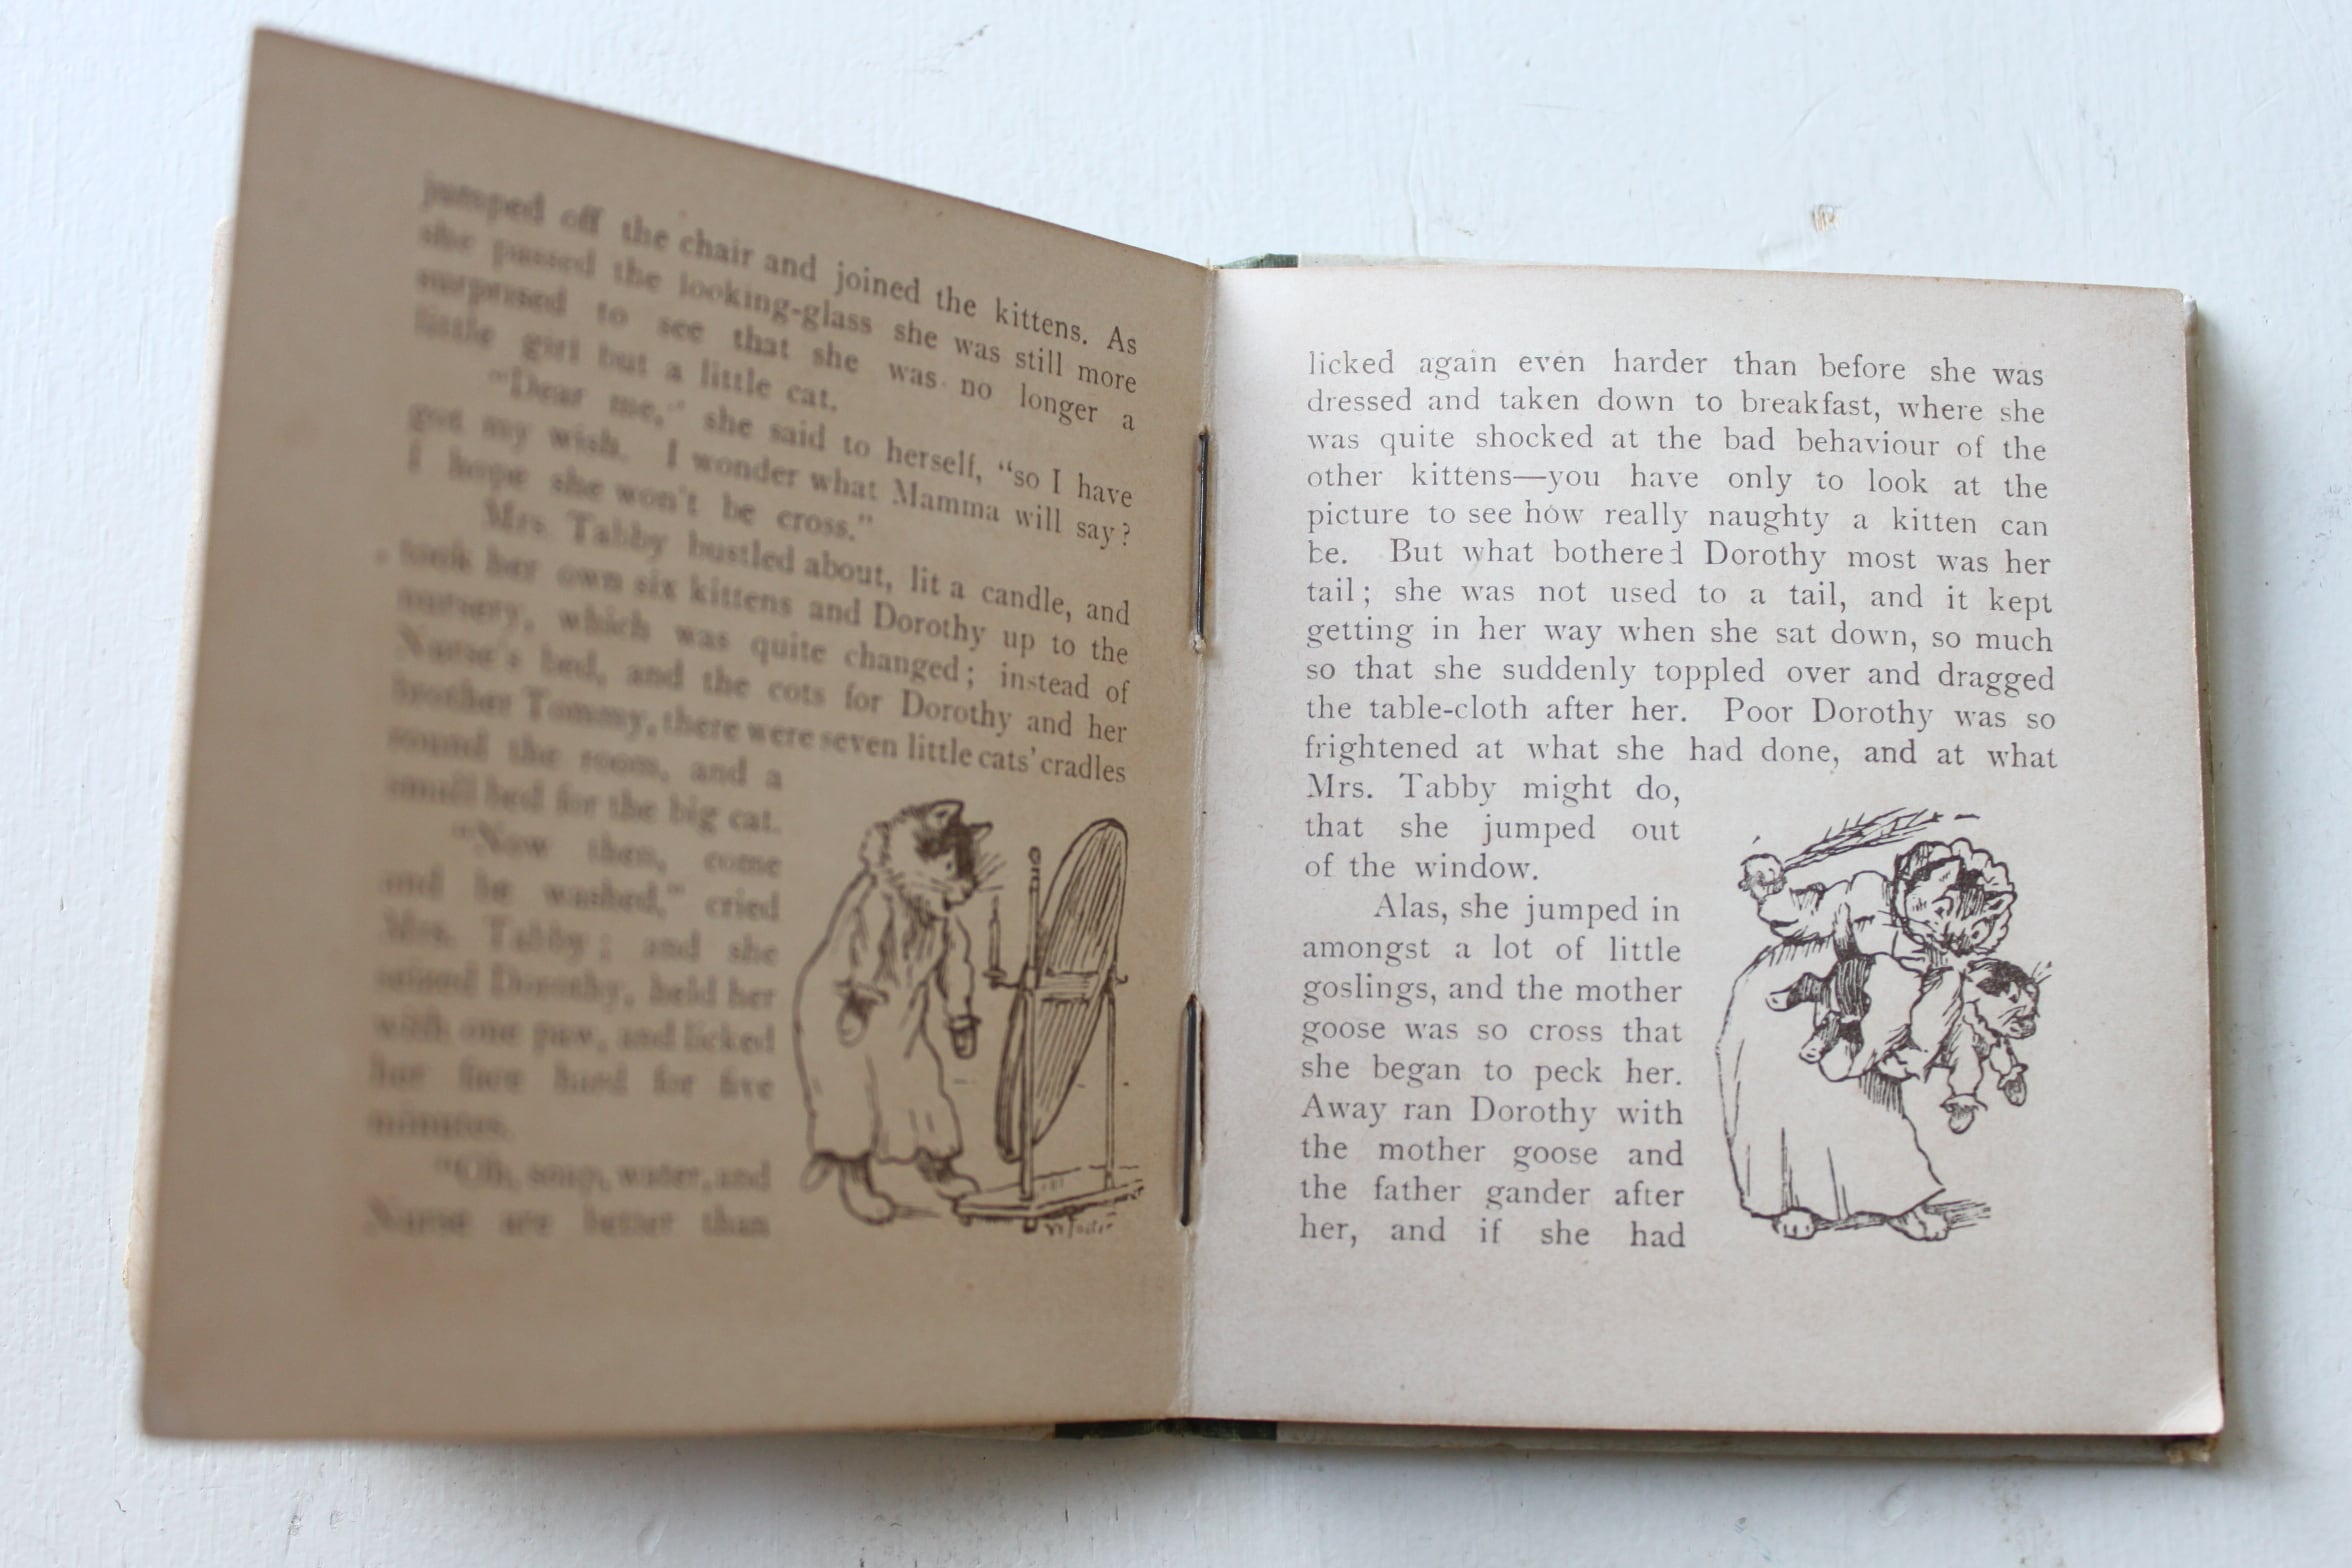 jumped off the chair and joined the kittens. As
she passed the looking-glass she was still more
surprised to see that she was no longer a
little girl but a little cat.
"Dear me," she said to herself, "so I have
got my wish. I wonder what Mamma will say?
I hope she won't be cross."
Mrs. Tabby bustled about, lit a candle, and
took her own six kittens and Dorothy up to the
nursery, which was quite changed; instead of
Nurse's bed, and the cots for Dorothy and her
brother Tommy, there were seven little cats' cradles
round the room, and a
small bed for the big cat.
"Now then, come
and be washed," cried
Mrs. Tabby; and she
seized Dorothy, held her
with one paw, and licked
her face hard for five
minutes.
"Oh, soap, water, and
Nurse are better than
licked again even harder than before she was
dressed and taken down to breakfast, where she
was quite shocked at the bad behaviour of the
other kittens—you have only to look at the
picture to see how really naughty a kitten can
be. But what bothered Dorothy most was her
tail; she was not used to a tail, and it kept
getting in her way when she sat down, so much
so that she suddenly toppled over and dragged
the table-cloth after her. Poor Dorothy was so
frightened at what she had done, and at what
Mrs. Tabby might do,
that she jumped out
of the window.
Alas, she jumped in
amongst a lot of little
goslings, and the mother
goose was so cross that
she began to peck her.
Away ran Dorothy with
the mother goose and
the father gander after
her, and if she had